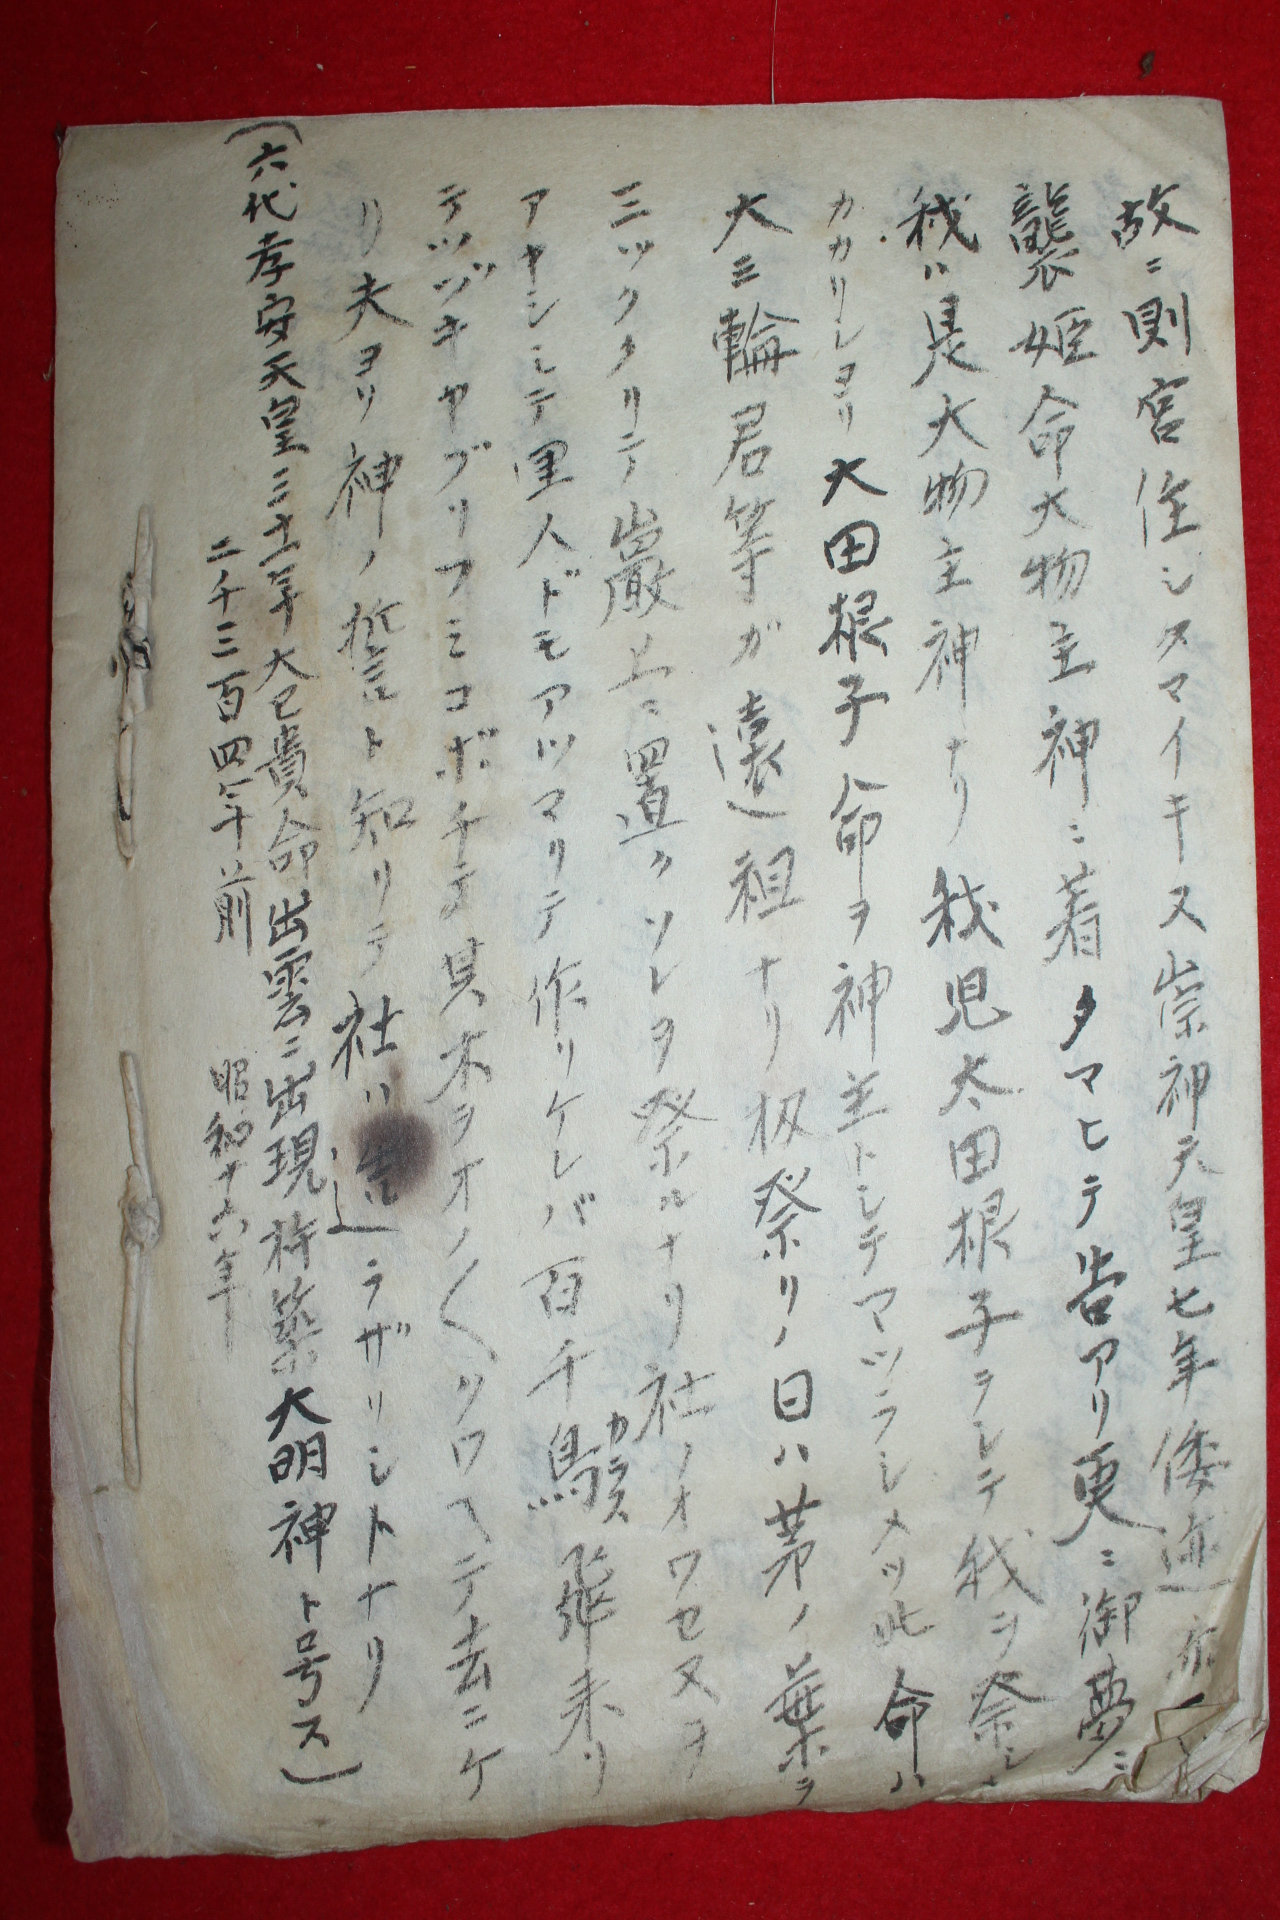 故ニ則宮住シタマイキ又崇神天皇七年倭迹亦
襲姫命大物主神ニ着タマヒテ告アリ更ニ御夢ニ
我ハ是大物主神ナリ我児大田根子ヲシテ我ヲ祭シ
カカリシヨリ大田根子命ヲ神主トシテマツラシメツ此命ハ
大ミ輪君等ガ遠祖ナリ扨祭リノ日ハ茅ノ葉ヲ
三ツクヽリテ巌上ニ置クソレヲ祭ルナリ社ノオワセヌヲ
アヤシミテ里人ドモアツマリテ作リケレバ百千烏カラス飛来リ
テツヅキヤブリフミコボチテ其木ヲオノ〱クワヘテ去ニケ
リ夫ヨリ神ノ誓ト知リテ社ハ造ラザリシトナリ
(六代孝安天皇三十一年大己貴命出雲ニ出現杵築大明神ト号ス)
二千三百四年前 昭和十六年